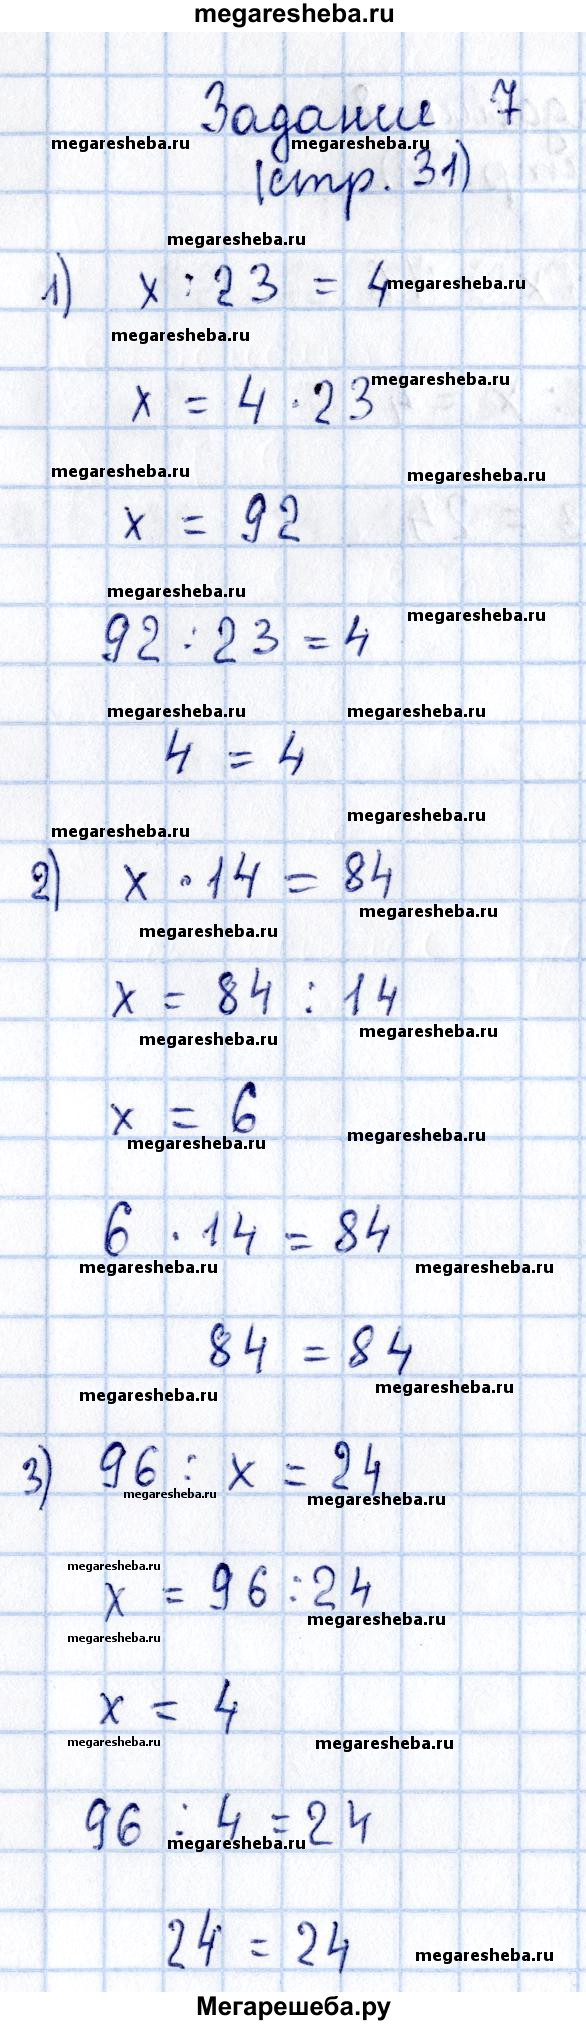 megaresheba.ru
Задание 7
megaresheba.ru megaresheba.ru
(стр. 31)
megaresheba.ru
1) x : 23 = 4 megaresheba.ru
megaresheba.ru
megaresheba.ru
x = 4 · 23
megaresheba.ru megaresheba.ru
x = 92
megaresheba.ru megaresheba.ru
92 : 23 = 4
megaresheba.ru megaresheba.ru
4 = 4
megaresheba.ru
megaresheba.ru
2) x · 14 = 84
megaresheba.ru
megaresheba.ru
x = 84 : 14
megaresheba.ru megaresheba.ru
x = 6
megaresheba.ru megaresheba.ru
6 · 14 = 84
megaresheba.ru megaresheba.ru
84 = 84
megaresheba.ru megaresheba.ru
3) 96 : x = 24
megaresheba.ru megaresheba.ru
megaresheba.ru
x = 96 : 24
megaresheba.ru
megaresheba.ru
x = 4
megaresheba.ru megaresheba.ru
96 : 4 = 24
megaresheba.ru
24 = 24 megaresheba.ru
Мегарешеба.ру